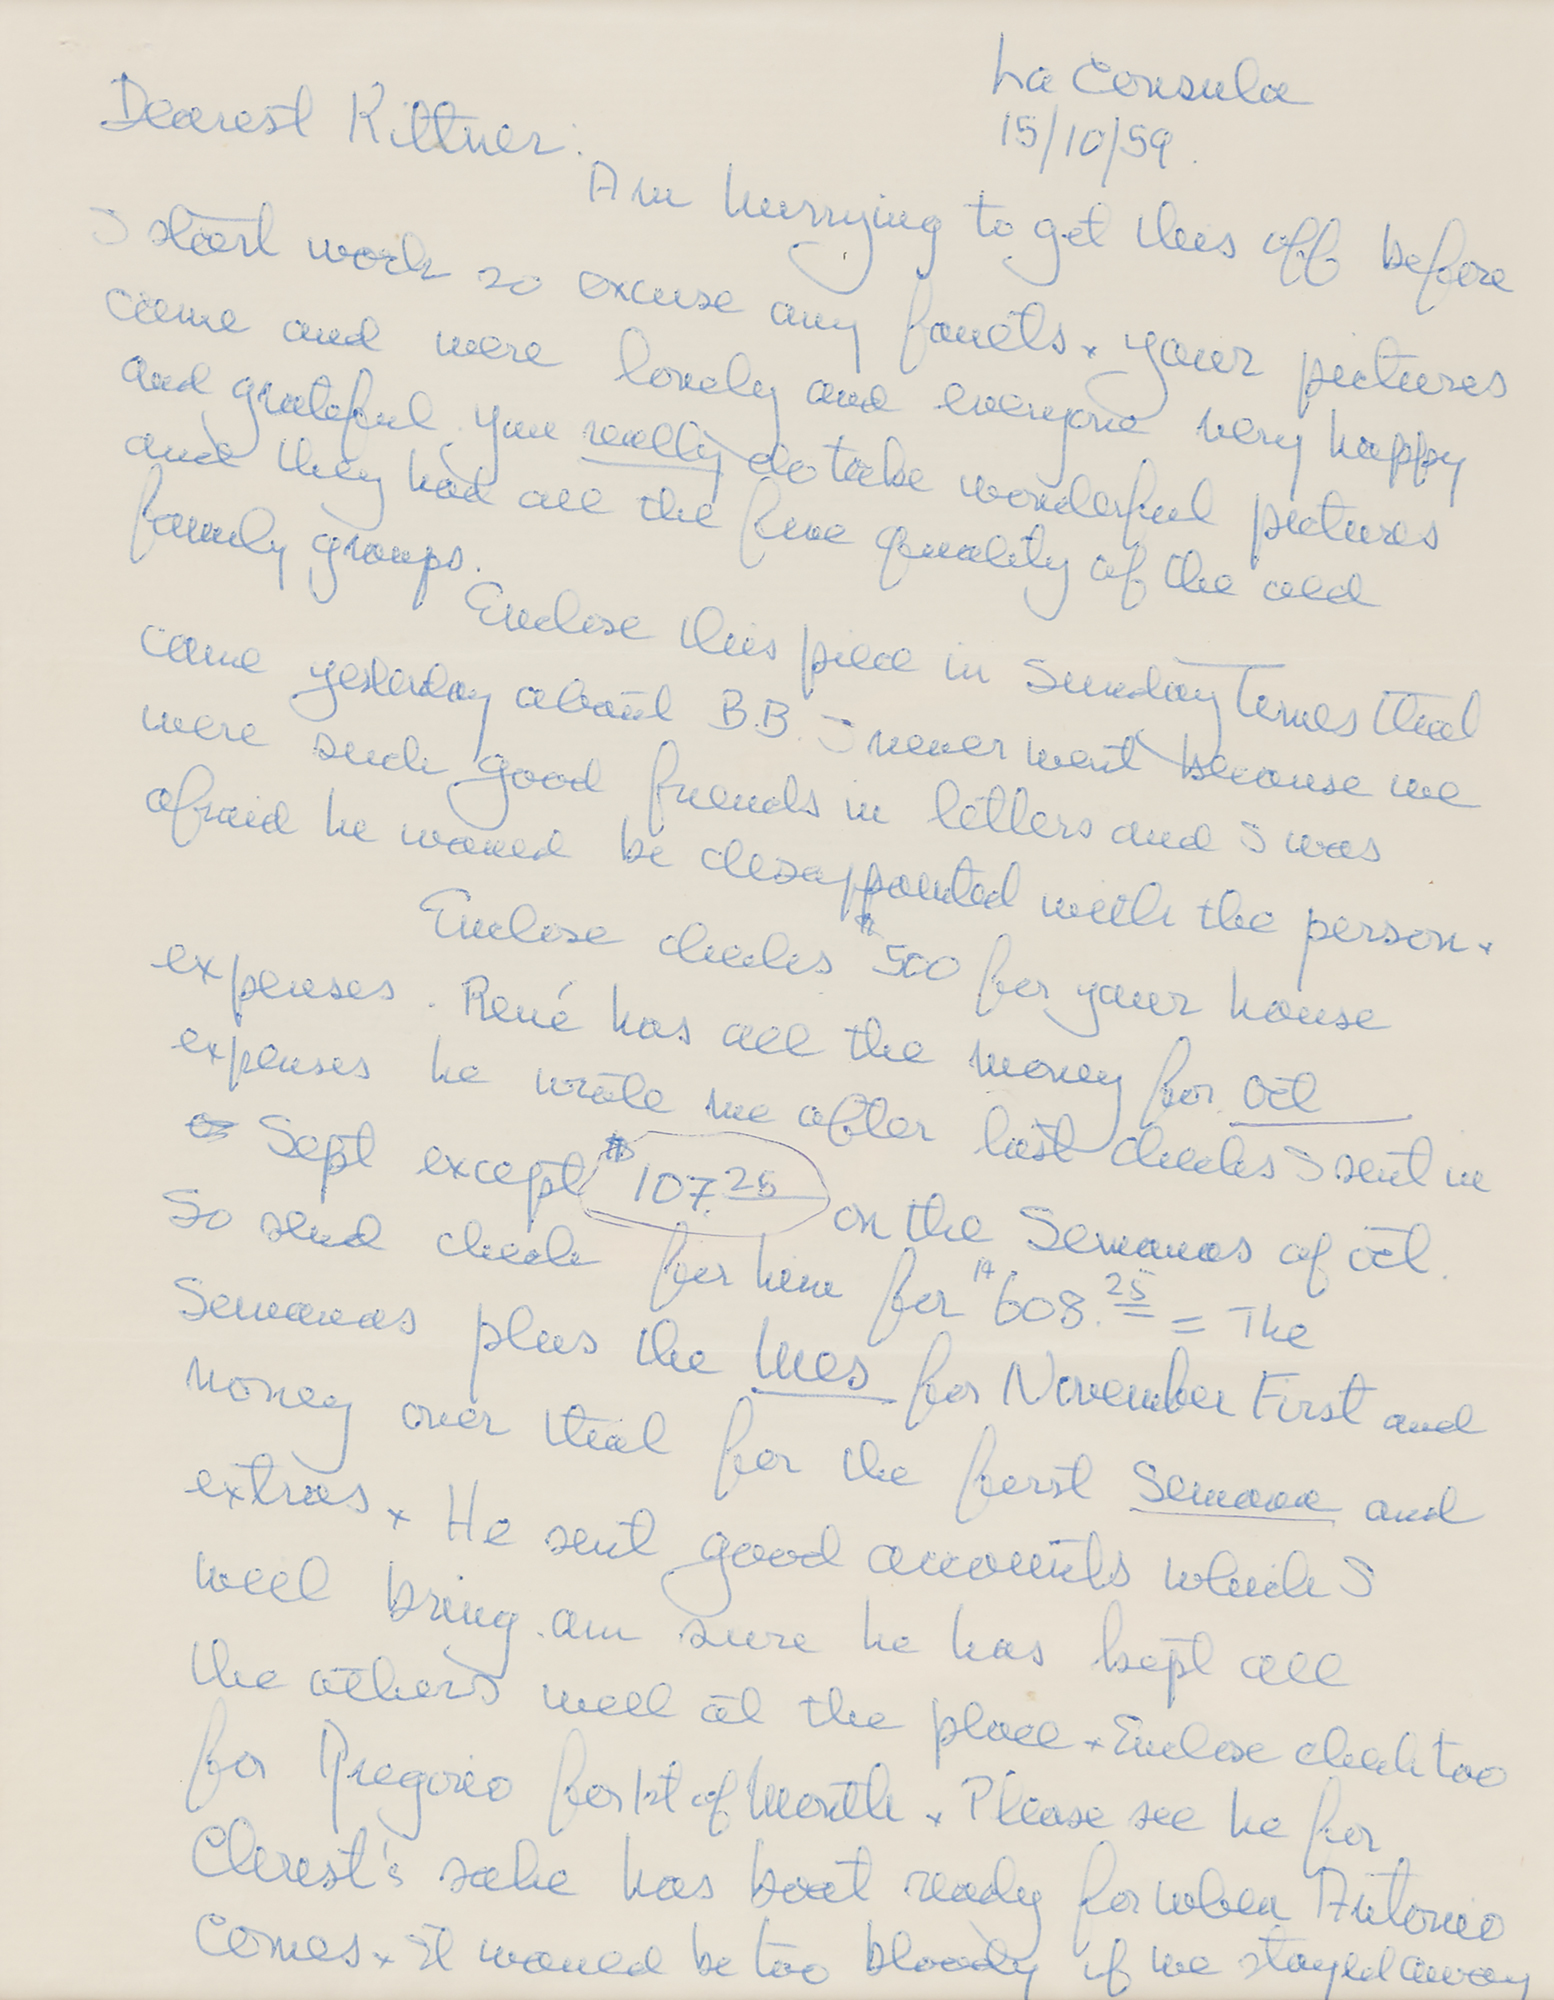 La Consula
15/10/59.
Dearest Kittner:
Am hurrying to get this off before
I start work so excuse any faults x your pictures
came and were lovely and everyone very happy
and grateful. You really do take wonderful pictures
and they had all the fine quality of the old
family groups.
Enclose this piece in Sunday Times that
came yesterday about B.B. I never went because we
were such good friends in letters and I was
afraid he would be disappointed with the person x
Enclose checks $500 for your house
expenses. René has all the money for Oct
expenses he wrote me after last checks I sent in
Sept except $107.25 on the Semanas of Oct.
So send check for him for $608.25 = The
Semanas plus the Mes for November First and
money over that for the first Semana and
extras x He sent good accounts which I
will bring. am sure he has kept all
the others well at the place x Enclose check too
for Gregorio for 1st of Month x Please see he for
Christ's sake has boat ready for when Antonio
comes x It would be too bloody if we stayed away